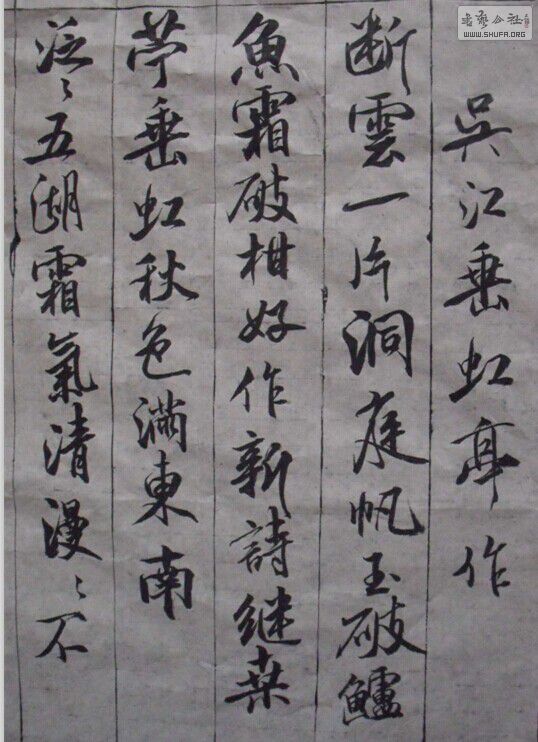 吳江垂虹亭作
断雲一片洞庭帆玉破鱸
魚霜破柑好作新詩継桒
苧垂虹秋色滿東南
泛〻五湖霜氣清漫〻不
書藝公社
WWW.SHUFA.ORG